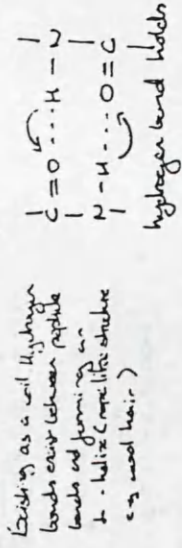 Existing as a coil Hydrogen
bonds exist between peptide
bonds and forming an
α-helix (repetitive structure
e.g wool hair)
| |
C = O ···· H — N
| |
N — H ···· O = C
| |
hydrogen bond holds